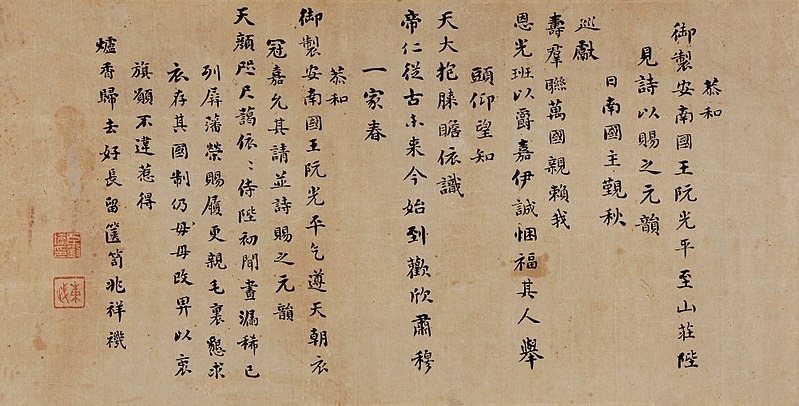 恭和
御製安南國王阮光平至山莊陛
見詩以賜之元韻
日南國主覲秋
巡獻
壽羣聯萬國親賴我
恩光班以爵嘉伊誠悃福其人舉
頭仰望知
天大抱膝瞻依識
帝仁從古未來今始到歡欣肅穆
一家春
恭和
御製安南國王阮光平乞遵天朝衣
冠嘉允其請並詩賜之元韻
天顏咫尺藹依〻侍陛初聞晝漏稀已
列屏藩榮賜履更親毛裏懇求
衣存其國制仍毋毋改畀以裏
旗願不違惹得
爐香歸去好長留篋笥兆祥禨